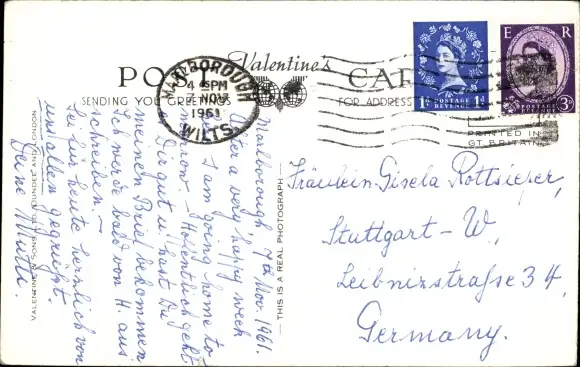 POST CARD
Valentine's
SENDING YOU GREETINGS
FOR ADDRESS
MARLBOROUGH
4 15PM
7 NOV
1961
WILTS.
1D POSTAGE REVENUE 1D
E R
POSTAGE REVENUE 3D
PRINTED IN
GT. BRITAIN
Marlborough 7th Nov. 1961.
After a very happy week
I am going home to-
morrow. - Hoffentlich geht
es Dir gut u. hast Du
meinen Brief bekommen.
Ich werde bald von H. aus
schreiben. -
Sei für heute herzlich von
uns allen gegrüßt.
Deine Mutti.
VALENTINE & SONS LTD. DUNDEE AND LONDON
— THIS IS A REAL PHOTOGRAPH —
Fräulein Gisela Rottsieper,
Stuttgart - W,
Leibnizstraße 34,
Germany.